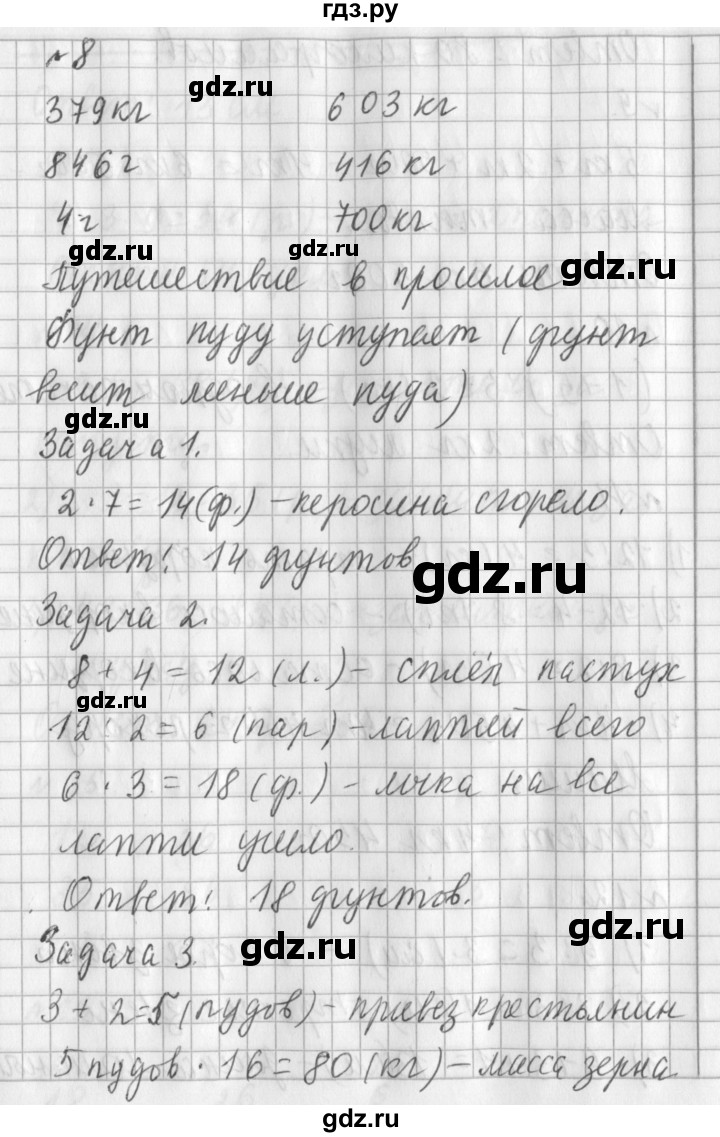 гдз.ру
№8
gdz.ru
379 кг 603 кг
846 г 416 кг
4 г 700 кг
gdz.ru gdz.ru
Путешествие в прошлое gdz.ru
Фунт пуду уступает (фунт
весит меньше пуда)
gdz.ru
Задача 1.
2 · 7 = 14 (ф.) – керосина сгорело.
Ответ: 14 фунтов
gdz.ru
Задача 2.
8 + 4 = 12 (л.) – сплёл пастух
gdz.ru
12 : 2 = 6 (пар) – лаптей всего
6 · 3 = 18 (ф.) – лыка на все
лапти ушло.
Ответ: 18 фунтов.
gdz.ru
Задача 3. gdz.ru
3 + 2 = 5 (пудов) – привез крестьянин
5 пудов · 16 = 80 (кг) – масса зерна
gdz.ru